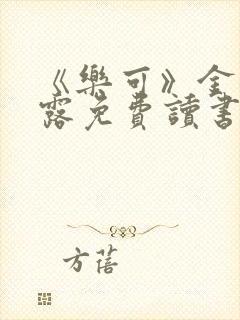 《樂可》全
露免費讀書
方蓓